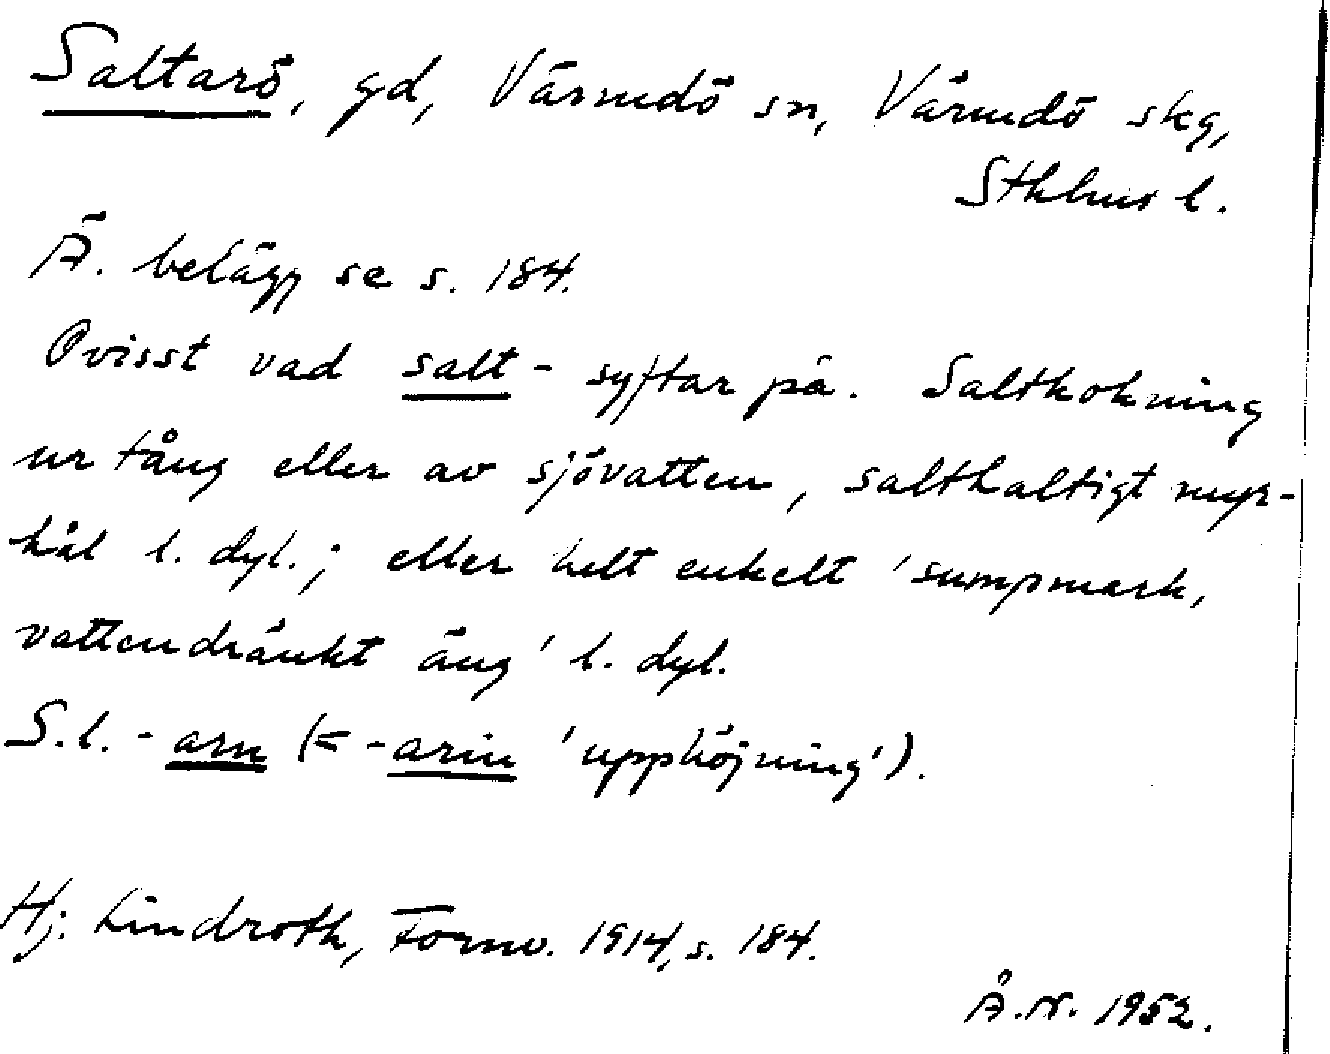 Saltarö, gd, Värmdö sn, Värmdö skg,
Sthlms l.
Ä. belägg se s. 184.
Ovisst vad salt- syftar på. Saltkokning
ur tång eller av sjövatten, salthaltigt myr-
hål l. dyl.; eller helt enkelt 'sumpmark,
vattendränkt äng' l. dyl.
S.l. -arn (< -arin 'upphöjning').
Hj. Lindroth, Fornv. 1914, s. 184.
Å.N. 1952.